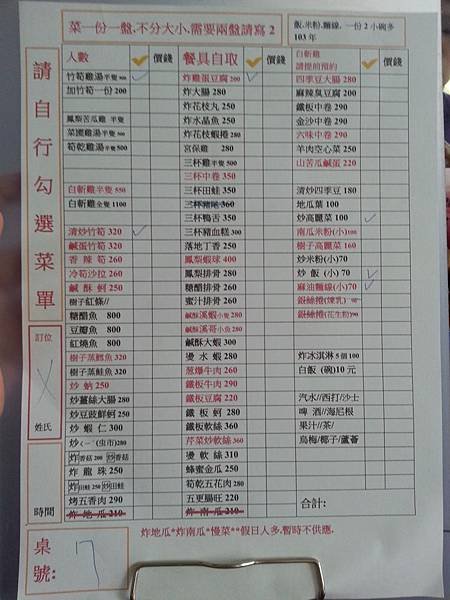 菜一份一盤.不分大小.需要兩盤請寫2
飯.米粉.麵線. 一份2小碗多
103年
請自行勾選菜單
人數 價錢 餐具自取 價錢 白斬雞 請提前預約 價錢
竹筍雞湯半隻 炸雞蛋豆腐200 四季豆大腸280
加竹筍一份200 炸大腸280 麻辣臭豆腐200
炸花枝丸250 鐵板中卷290
鳳梨苦瓜雞 半隻 炸水晶魚250 金沙中卷290
菜脯雞湯半隻500 炸花枝蝦捲280 六味中卷290
筍乾雞湯半隻500 宮保雞 280 羊肉空心菜250
三杯雞半隻500 山苦瓜鹹蛋220
三杯中卷350
白斬雞半隻550 三杯田蛙350 清炒四季豆180
白斬雞全隻1100 360 地瓜葉100
三杯鴨舌350 炒高麗菜100
清炒竹筍320 三杯豬血糕300 南瓜米粉(小)100
鹹蛋竹筍320 落地丁香250 樹子高麗菜160
香辣筍260 鳳梨蝦球400 炒米粉(小)70
冷筍沙拉260 鳳梨排骨280 炒飯(小)70
鹹酥蚵250 糖醋排骨260 麻油麵線(小)70
樹子紅條// 蜜汁排骨260 銀絲捲(煉乳)
糖醋魚 800 鹹酥溪蝦小隻280 銀絲捲(花生粉)
豆瓣魚 800 鹹酥溪哥小魚280
紅燒魚 800 鹹酥大蝦300
樹子蒸鱈魚320 燙水蝦280 炸冰淇淋5個100
樹子蒸鮭魚320 蔥爆牛肉260 白飯(碗)10元
炒蛤250 鐵板牛肉290
炒薑絲大腸280 鐵板豆腐220 汽水//西打/沙士
炒豆豉鮮蚵250 鐵板蚵280 啤酒//海尼根
炒蝦仁300 鐵板軟絲360 果汁//茶/
炒(ㄧˊ(虫市)280 芹菜炒軟絲360 烏梅/椰子/蘆薈
炸香菇200 炒香菇 燙軟絲310
炸龍珠250 蜂蜜金瓜250
炸田蛙250 炒田蛙 筍乾五花肉280
烤五香肉290 五更腸旺220
炸地瓜210 炸南瓜210 合計:
訂位
姓氏
時間
桌號: 7
炸地瓜*炸南瓜*慢菜**假日人多.暫時不供應.